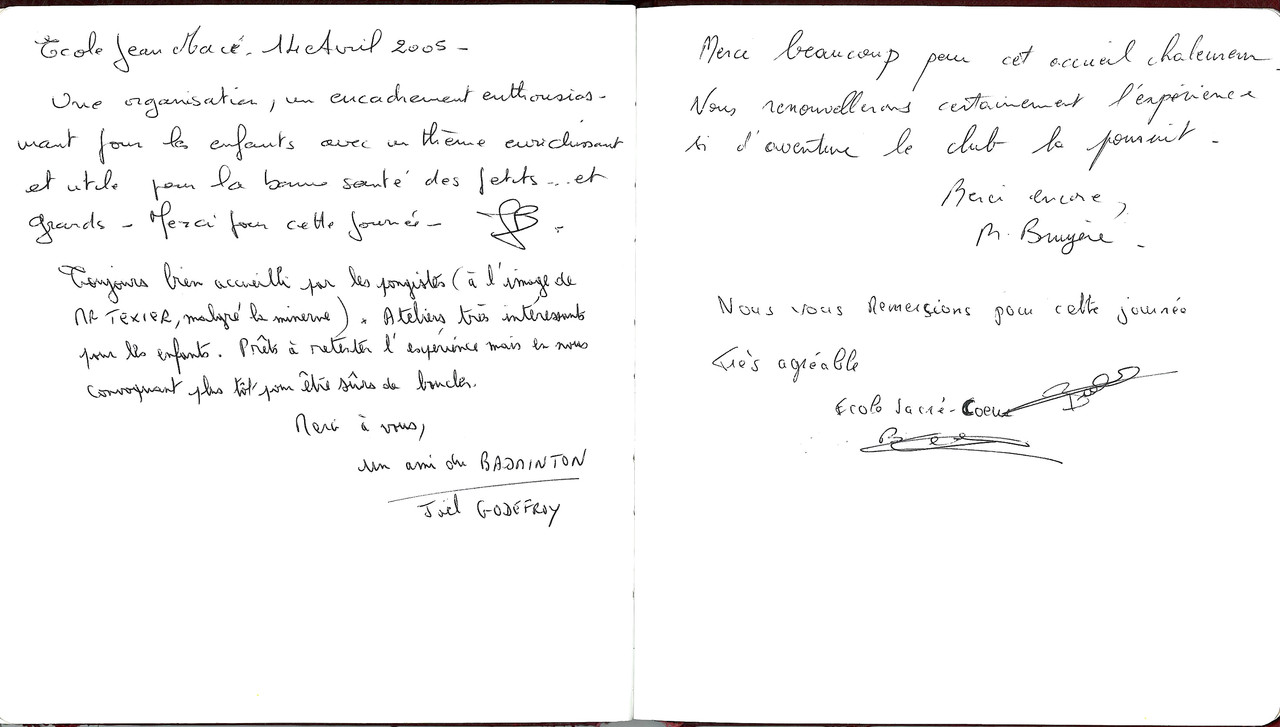 Ecole Jean Macé - 14 Avril 2005 -
Une organisation, un encadrement enthousias-
mant pour les enfants avec un thème enrichissant
et utile pour la bonne santé des petits... et
grands - Merci pour cette journée -
Toujours bien accueilli par les pongistes (à l'image de
MR TEXIER, malgré la minerve). Ateliers très intéressants
pour les enfants. Prêts à retenter l'expérience mais en nous
convoquant plus tôt pour être sûrs de boucler.
Merci à vous,
un ami du BADMINTON
Joël GODEFROY
Merci beaucoup pour cet accueil chaleureux.
Nous renouvellerons certainement l'expérience
si d'aventure le club le pouvait.
Merci encore,
M. Bruyère.
Nous vous Remerçions pour cette journée
très agréable
Ecole Sacré-Coeur